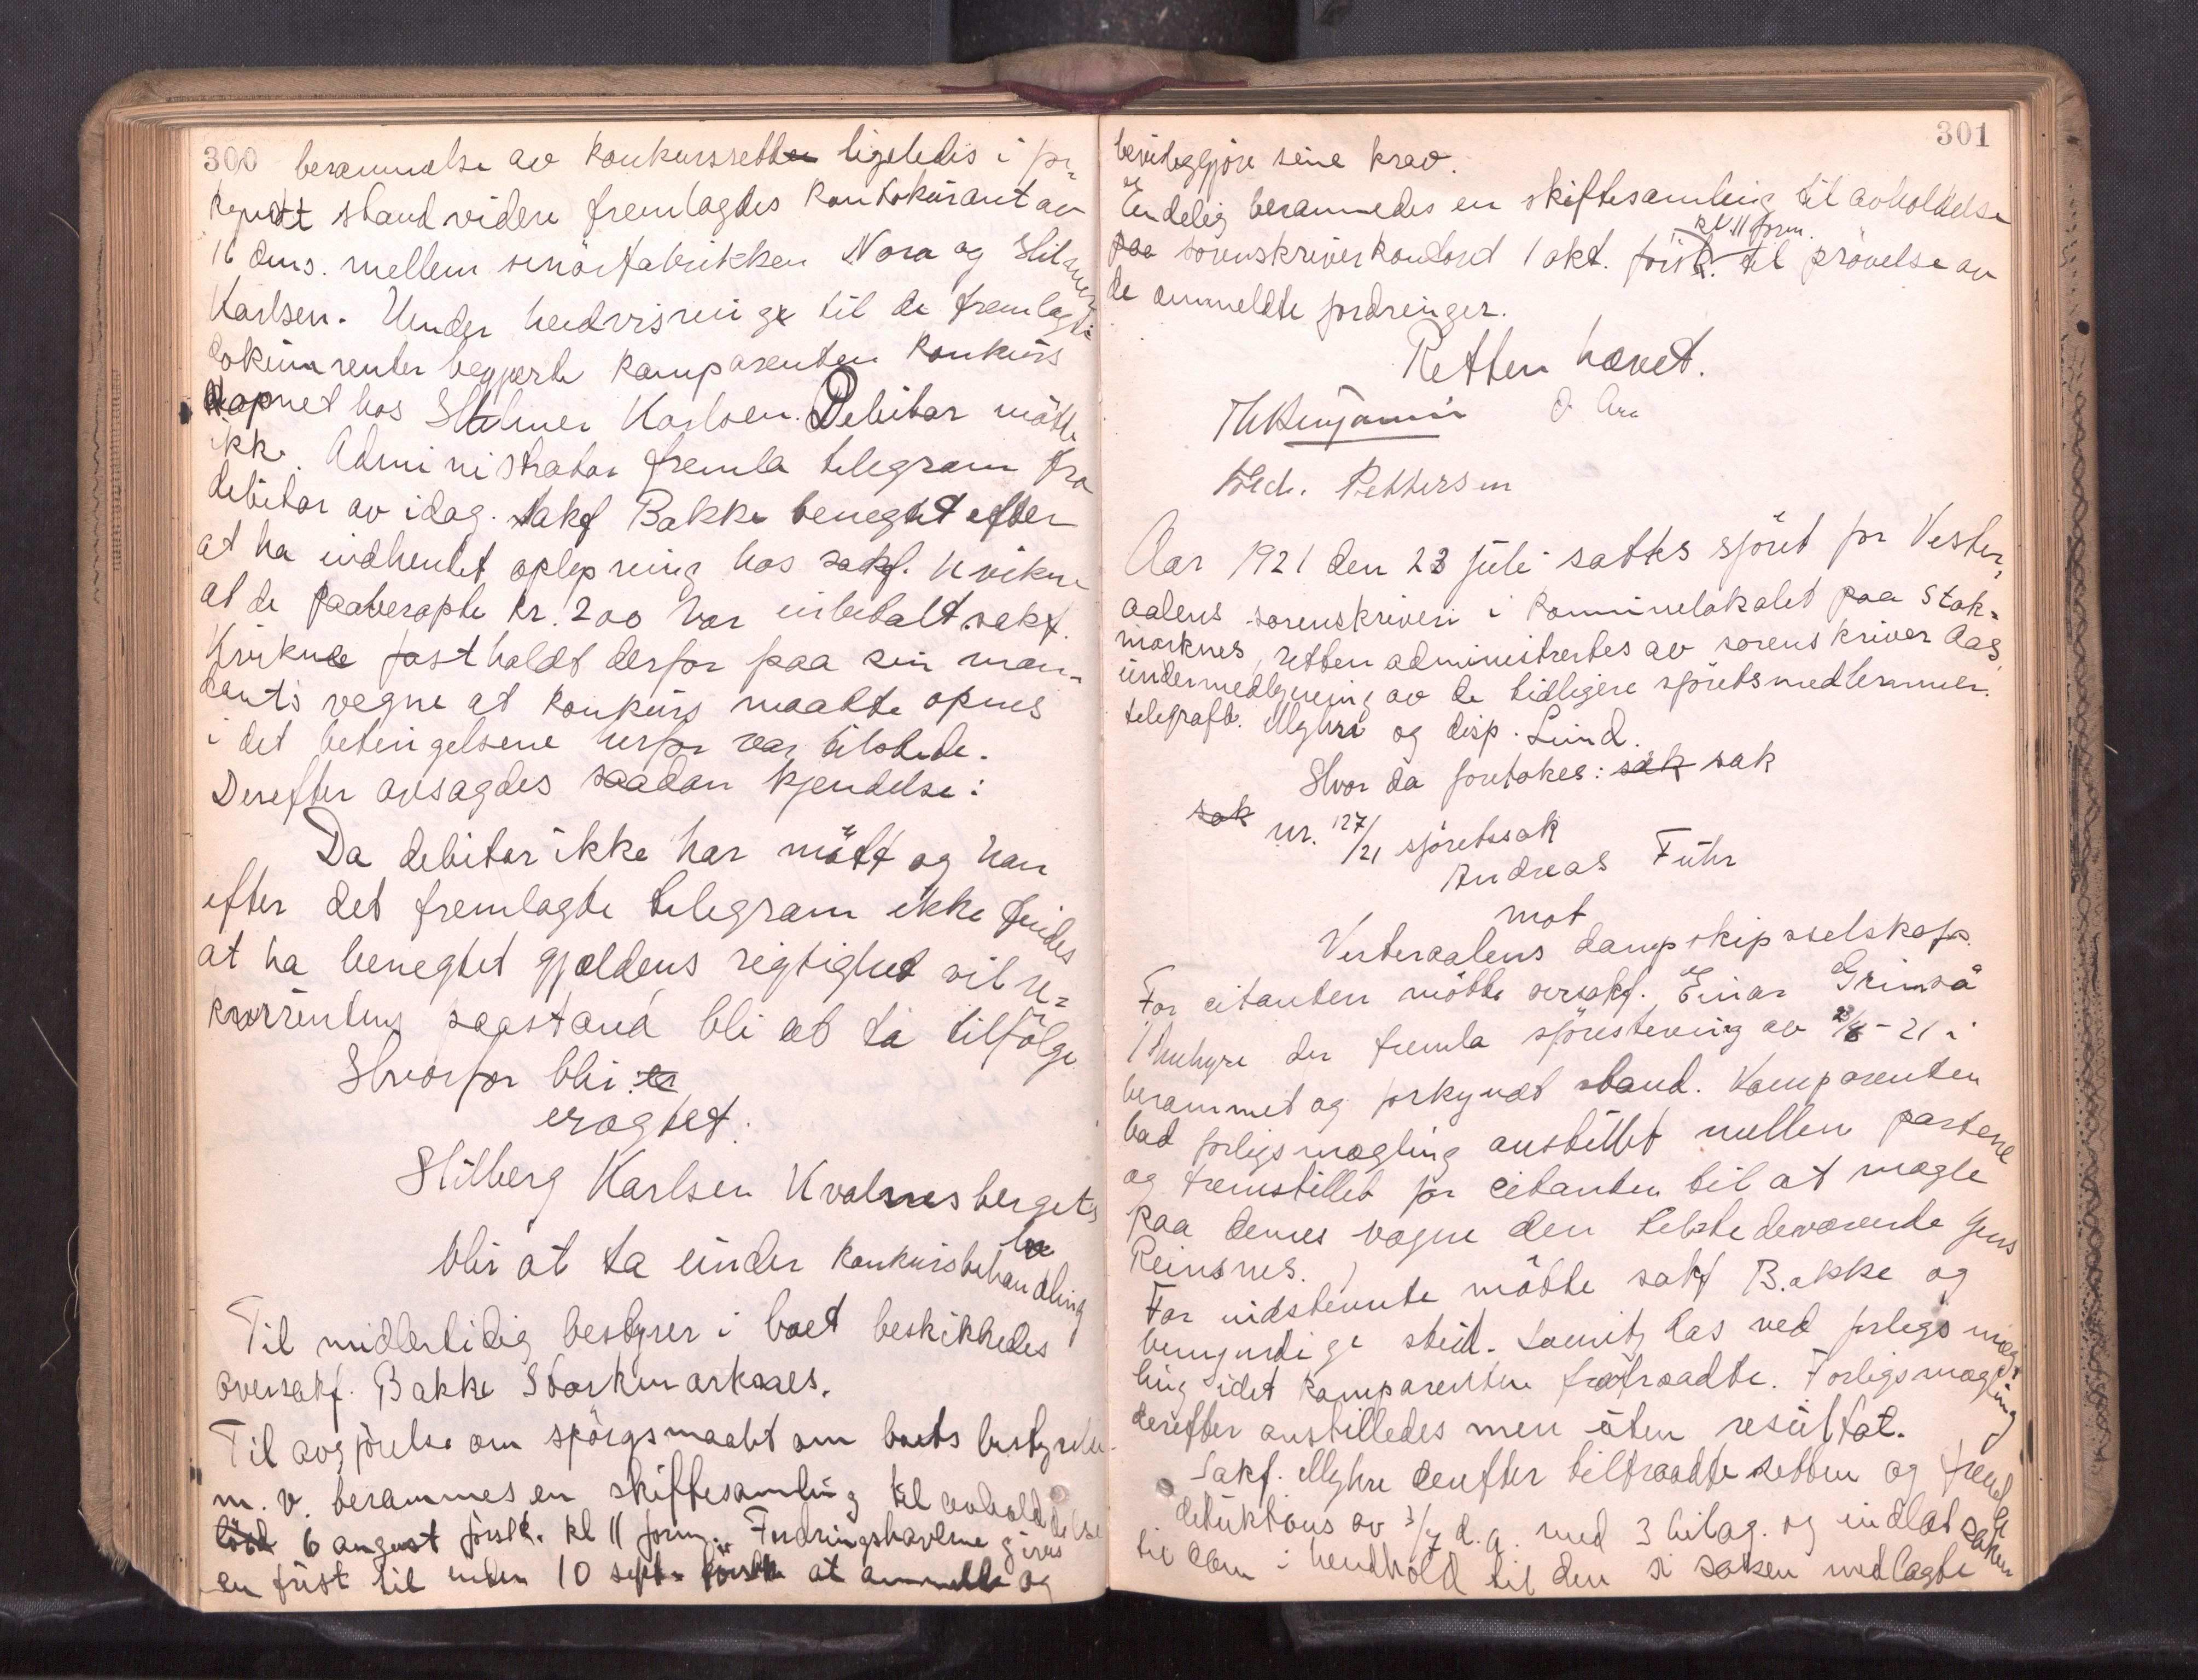 300 berammelse av konkursretten ligeledes i for-
kyndt stand videre fremlagdes kontokurant av
16 dms. mellem smörfabrikken Nora og Hilmer
Karlsen. Under henvisning til de fremlagte
dokumenter begjærte komparenten konkurs
aapnet hos Hilmer Karlsen. Debitor mötte
ikke. Administrator fremla telegram fra
debitor av idag. Sakf Bakke benegtet efter
at ha indhentet oplysning hos sakf. Kvikne
at de paaberopte kr. 200 var indbetalt. sakf.
Kvikne fastholdt derfor paa sin man-
dants vegne at konkurs maatte opnes
i det betingelsene herfor var tilstede.
Derefter avsagdes saadan kjendelse:
Da debitor ikke har mött og han
efter det fremlagte telegram ikke findes
at ha benegtet gjældens rigtighet vil re-
kvirentens paastand bli at ta tilfölge
Hvorfor blir er
eragtet:
Hilberg Karlsen Kvalnesbergets
bo
blir at ta under konkursbehandling
Til midlertidig bestyrer i boet beskikkedes
oversakf. Bakke Stokmarknes.
Til avgjörelse om spörgsmaalet om boets bestyrelse
m. v. berammes en skiftesamling til avholdelse
lörd 6 august förstk. kl 11 form. Fordringshaverne gives
en frist til inden 10 sept. förstk at anmelde og
301
bevisliggjöre sine krav.
Endelig berammedes en skiftesamling til avholdelse
kl 11 form.
paa sorenskriverkontoret 1 okt. förstk. til prövelse av
de anmeldte fordringer.
Retten hævet.
Th Benjamin O. Aas
Fred. Pettersen
Aar 1921 den 23 juli sattes sjöret for Vester-
aalens sorenskriveri i kommunelokalet paa Stok-
marknes, retten administrertes av sorenskriver Aas,
under medbetjening av de tidligere sjöretsmedlemmer.
telegrafb. Myhre og disp. Lund.
Hvor da foretokes: sak sak
sak nr. 127/21 sjöretssak
Andreas Führ
mot
Vesteraalens dampskipsselskap.
For citanten mötte oversakf. Einar Grimsö
/Myhre der fremla sjöretstevning av 23/6 - 21 i
berammet og forkyndt stand. Komparenten
bad forligsmægling anstillet mellem partene
og fremstillet for citanten til at mægle
paa dennes vegne den tilstedeværende Jens
Reinsnes.
For indstevnte mötte sakf Bakke og
bemyndige stud. Lowitz las ved forligsmæg-
ling idet komparenten fratraadte. Forligsmægling
derefter anstilledes men uten resultat.
Sakf. Myhre derefter tiltraadte retten og fremla
deduktions av 3/7 d.a. med 3 bilag. og indlot saken
til dom i henhold til den i saken nedlagte